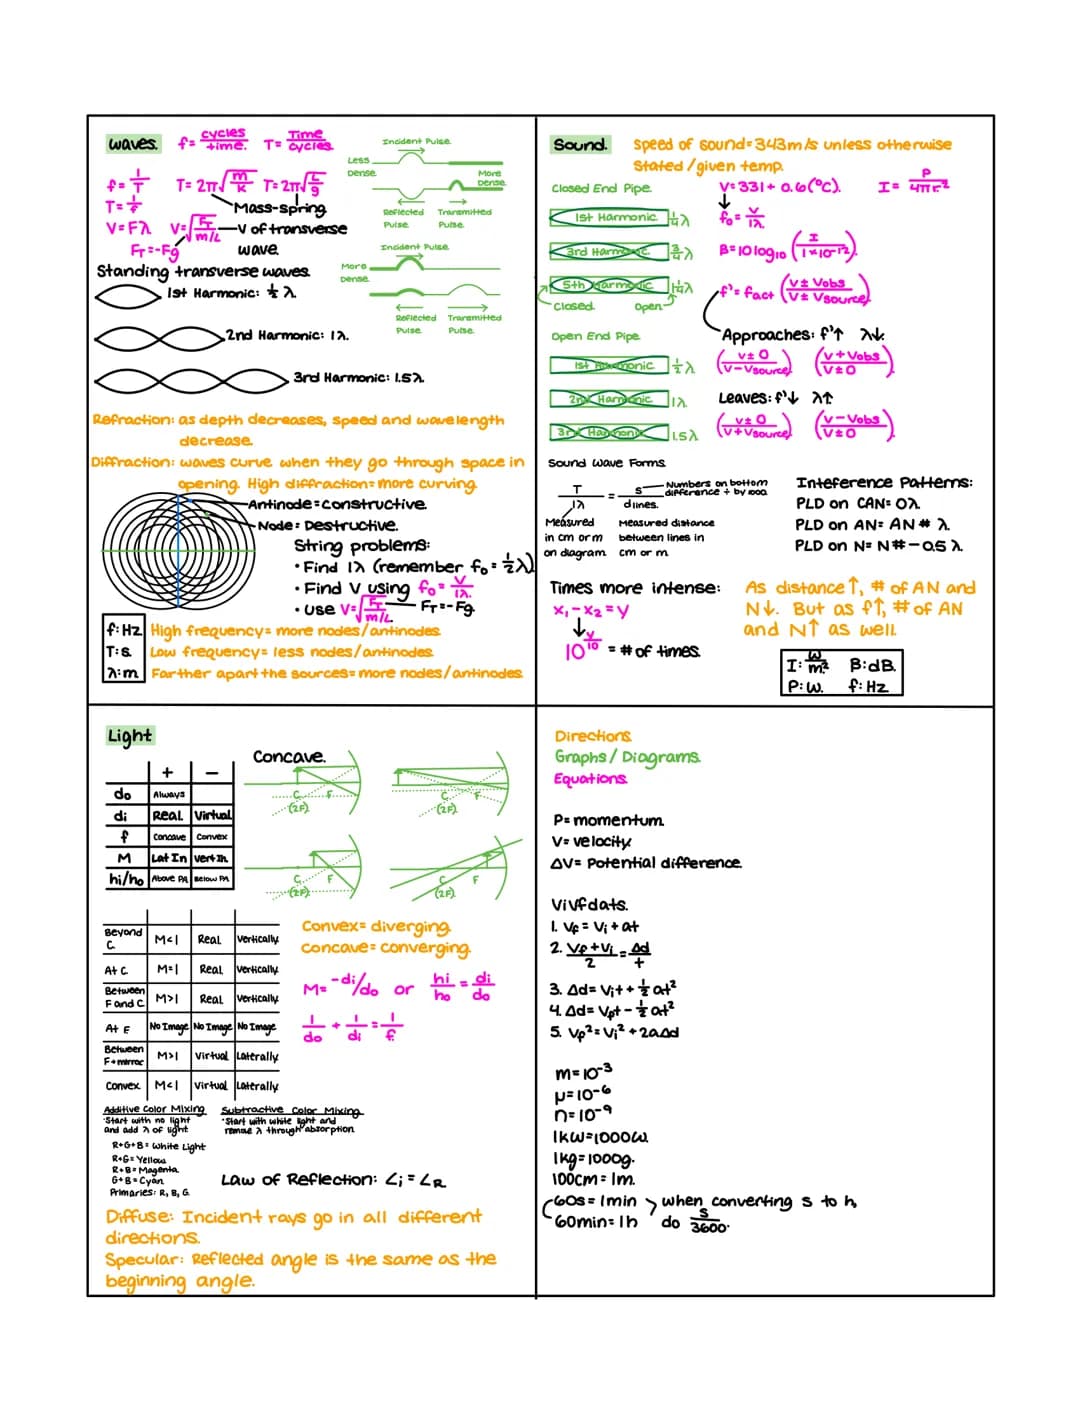 Waves.
f= cycles/time. T= Time/cycles.
f= 1/T T= 2π√(m/k) T= 2π√(L/g)
T= 1/f Mass-spring
V= Fλ V= √(FT/(m/L)) V of transverse
FT=-Fg wave.
Standing transverse waves.
1st Harmonic: ½ λ.
2nd Harmonic: 1λ.
3rd Harmonic: 1.5λ.
Incident Pulse.
Less
Dense.
More
Dense.
Reflected Transmitted
Pulse. Pulse.
Incident Pulse.
More
Dense.
Reflected Transmitted
Pulse. Pulse.
Refraction: as depth decreases, speed and wavelength
decrease.
Diffraction: waves curve when they go through space in
opening. High diffraction= more curving.
Antinode = constructive.
Node = Destructive.
String problems:
• Find 1λ (remember f₀ = ½λ)
• Find V using f₀ = V/1λ.
• Use V=√(FT/(m/L)) FT=-Fg.
f: Hz
T: s.
λ: m.
High frequency= more nodes/antinodes.
Low frequency= less nodes/antinodes.
Farther apart the sources= more nodes/antinodes.
Sound.
Speed of sound= 343m/s unless otherwise
stated/given temp.
Closed End Pipe.
1st Harmonic ¼λ
3rd Harmonic ¾λ
5th Harmonic 1¼λ
Closed. Open.
Open End Pipe.
1st Harmonic ½λ
2nd Harmonic 1λ
3rd Harmonic 1.5λ
V= 331+ 0.6(°C). I= P/4πr²
f₀= V/1λ.
B= 10 log₁₀ (I/1×10⁻¹²).
f'= fact (V± Vobs/V± Vsource)
Approaches: f'↑ λ↓.
(V± 0/V-Vsource) (V+Vobs/V±0).
Leaves: f'↓ λ↑
(V± 0/V+Vsource) (V-Vobs/V±0).
Sound Wave Forms.
T/1λ = s/d lines.
Numbers on bottom
difference ÷ by 1000.
Measured
in cm or m
on diagram.
Measured distance
between lines in
cm or m.
Inteference Patterns:
PLD on CAN= 0λ.
PLD on AN= AN # λ.
PLD on N= N#-0.5 λ.
Times more intense:
x₁ - x₂ = y
10^(y/10) = # of times.
As distance ↑, # of AN and
N↓. But as f↑, # of AN
and N↑ as well.
I: W/m². B: dB.
P: W. f: Hz
Light
+ -
do Always
di Real. Virtual.
f Concave Convex
M Lat In Vert In.
hi/ho Above PA Below PA.
Concave.
C F
(2F)
C F
(2F)
C F
(2F)
C F
(2F)
Beyond C. M<1 Real. Vertically.
At C. M=1 Real. Vertically.
Between F and C. M>1 Real. Vertically.
At F No Image No Image No Image
Between F+mirror M>1 Virtual Laterally.
Convex. M<1 Virtual Laterally.
Convex= diverging.
Concave= converging.
M= -di/do or hi/ho = di/do
1/do + 1/di = 1/f.
Additive Color Mixing
•Start with no light
and add λ of light
R+G+B= White Light
R+G= Yellow.
R+B= Magenta.
G+B= Cyan.
Primaries: R, B, G.
Subtractive Color Mixing.
•Start with white light and
remove λ through absorption.
Law of Reflection: ∠i = ∠R.
Diffuse: Incident rays go in all different
directions.
Specular: Reflected angle is the same as the
beginning angle.
Directions.
Graphs/ Diagrams.
Equations.
P= momentum.
V= velocity.
ΔV= Potential difference.
ViVfdats.
1. Vf = Vi + at
2. Vf+Vi/2 = Δd/t
3. Δd= Vit + ½ at²
4. Δd= Vft - ½ at²
5. Vf²= Vi² + 2aΔd
m= 10⁻³
μ= 10⁻⁶
n= 10⁻⁹
1kW=1000W.
1kg= 1000g.
100cm= 1m.
60s= 1min when converting s to h,
60min= 1h do s/3600.